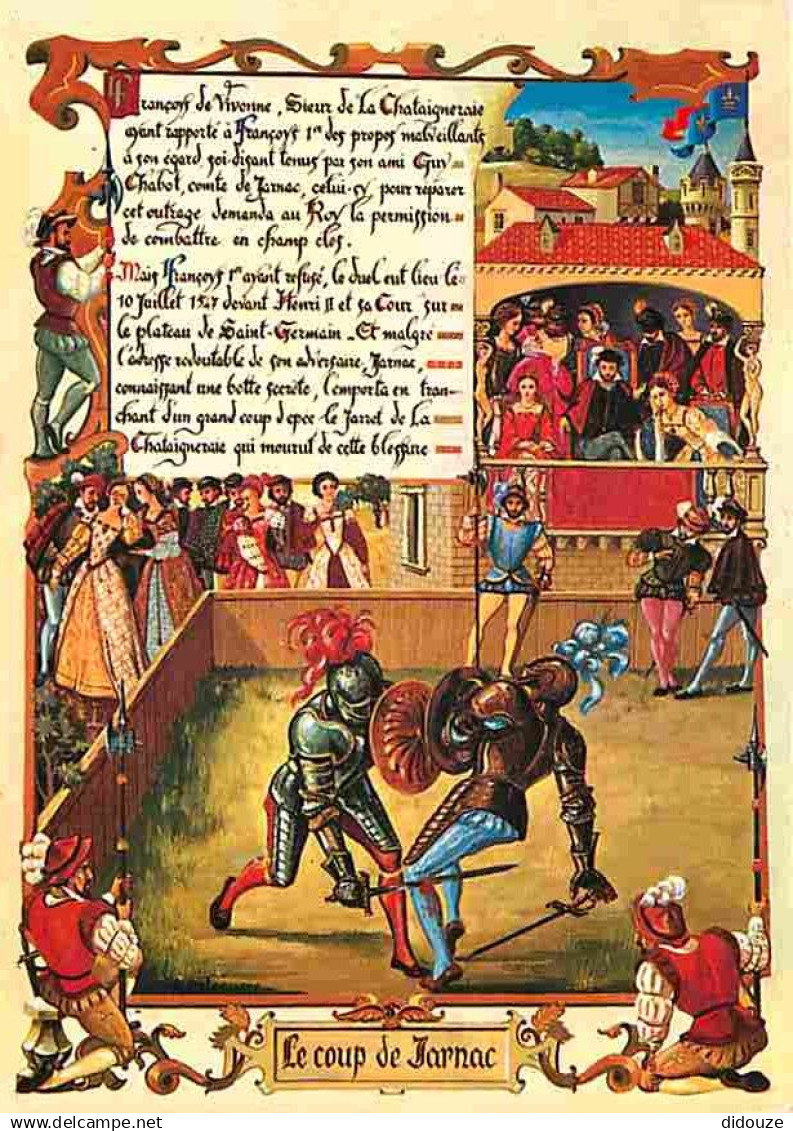 Françoys de Vivonne, Sieur de La Chataigneraie
ayant rapporté à Françoys 1er des propos malveillants
à son égard soi-disant tenus par son ami Guy
Chabot, comte de Jarnac, celui-cy, pour réparer
cet outrage demanda au Roy la permission
de combattre en champ clos.
Mais Françoys 1er ayant refusé, le duel eut lieu le
10 Juillet 1547 devant Henri II et sa Cour sur
le plateau de Saint-Germain _ Et malgré
l'adresse redoutable de son adversaire, Jarnac,
connaissant une botte secrète, l'emporta en tran-
chant d'un grand coup d'épée le Jarret de La
Chataigneraie qui mourut de cette blessure
Le coup de Jarnac
didouze